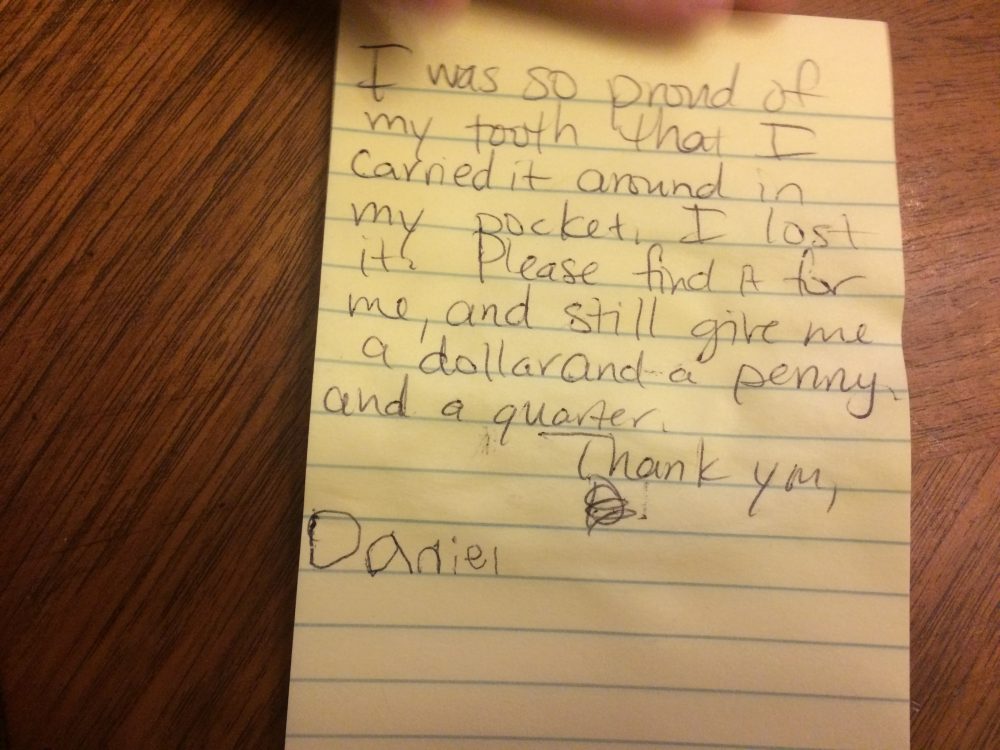 I was so proud of
my tooth that I
carried it around in
my pocket. I lost
it. Please find it for
me, and still give me
a dollar and a penny.
and a quarter.
Thank you,
Daniel